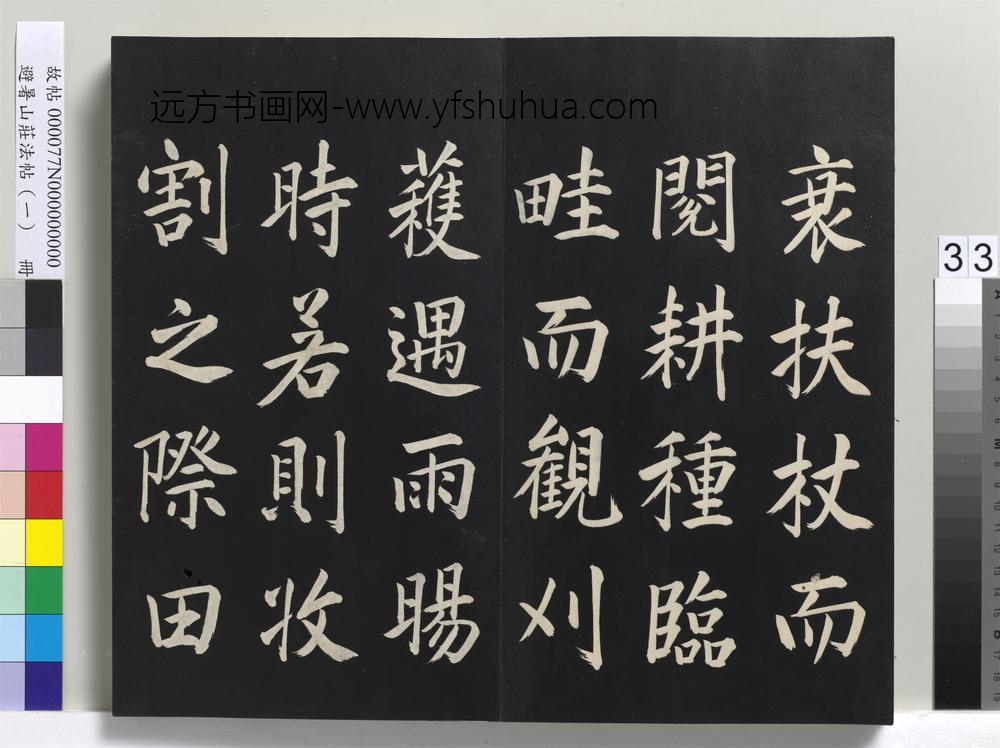 远方书画网-www.yfshuhua.com
衰扶杖而
閱耕種臨
畦而觀刈
蔓遇雨暘
時若則收
割之際田
故帖 000077N000000000
避暑山莊法帖（一） 冊
33